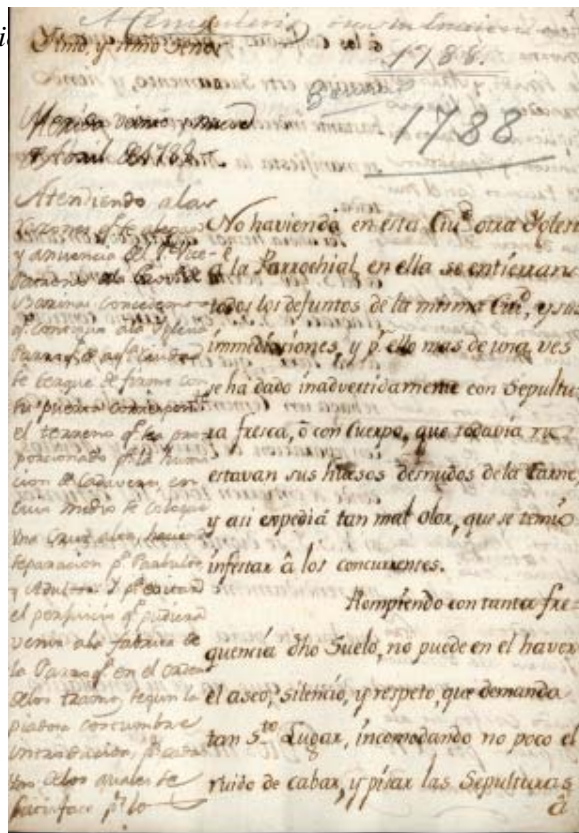 Ylmo. y Rmo. Señor
1788.
1788
Merida veinte y nueve
de Abril de 1788.
Atendiendo a las
y anuencia del
Patrono
Barinas
q.e contigua a la Yglesia
Parroq.l de aq.lla Ciudad
se cerque de firme con
su puerta correspond.te
el terreno q.e sea pro
porcionado p.a la huma
cion de Cadaveres, en
cuio medio se coloque
Una Cruz alta, haciend
separacion p.a Parbulos
y Adultos. Y p.a evitar
el perjuicio q.e pudiera
venir a la fabrica de
la Parroq.l en el
de los tramos, segun la
piadosa costumbre
introducida,
de los quales se
satisface p.r lo
No haviendo en esta Ciu.d otra Yglesi
â la Parrochial, en ella se entierran
todos los defuntos de la misma Ciu.d, y sus
immediaciones, y p.r ello mas de una ves
se ha dado inadvertidamente con Sepultu
ra fresca, ô con Cuerpo, que todavia no
estavan sus huesos desnudos de la Carne,
y asi expediâ tan mal olor, que se temiô
infestar â los concurrentes.
Rompiendo con tanta fre
quencia dho Suelo, no puede en el haver
el aseo, silencio, y respeto, que demanda
tan S.to Lugar, incomodando no poco el
ruido de cabar, y pisar las Sepulturas
â